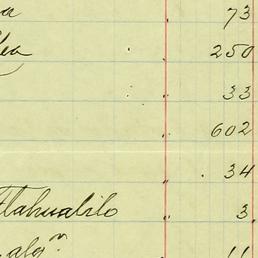 a 73
lea " 250
" 33
602
34
Tlahualilo " 3
alg.n " 11